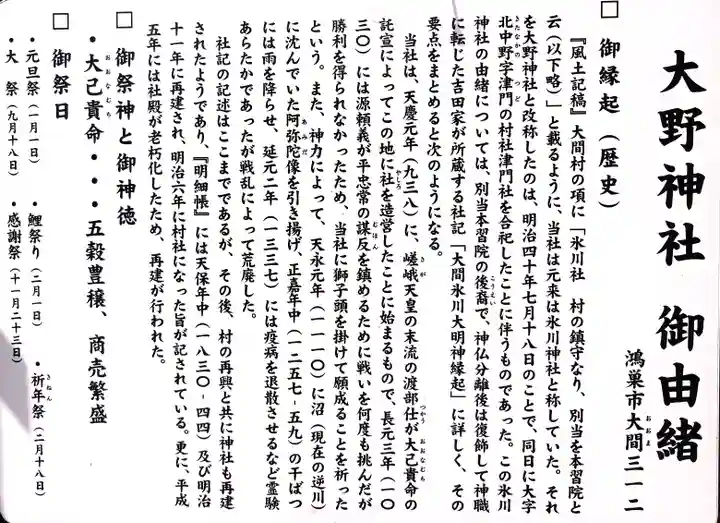 大野神社 御由緒
鴻巣市大間三一二
□ 御縁起（歴史）
『風土記稿』大間村の項に「氷川社 村の鎮守なり、別当を本習院と
云（以下略）」と載るように、当社は元来は氷川神社と称していた。それ
を大野神社と改称したのは、明治四十年七月十八日のことで、同日に大字
北中野字津門の村社津門社を合祀したことに伴うものであった。この氷川
神社の由緒については、別当本習院の後裔で、神仏分離後は復飾して神職
に転じた吉田家が所蔵する社記「大間氷川大明神縁起」に詳しく、その
要点をまとめると次のようになる。
当社は、天慶元年（九三八）に、嵯峨天皇の末流の渡部仕が大己貴命の
託宣によってこの地に社を造営したことに始まるもので、長元三年（一〇
三〇）には源頼義が平忠常の謀反を鎮めるために戦いを何度も挑んだが
勝利を得られなかったため、当社に獅子頭を掛けて願成ることを祈った
という。また、神力によって、天永元年（一一一〇）に沼（現在の逆川）
に沈んでいた阿弥陀像を引き揚げ、正嘉年中（一二五七-五九）の干ばつ
には雨を降らせ、延元二年（一三三七）には疫病を退散させるなど霊験
あらたかであったが戦乱によって荒廃した。
社記の記述はここまでであるが、その後、村の再興と共に神社も再建
されたようであり、『明細帳』には天保年中（一八三〇-四四）及び明治
十一年に再建され、明治六年に村社になった旨が記されている。更に、平成
五年には社殿が老朽化したため、再建が行われた。
□ 御祭神と御神徳
・大己貴命・・・五穀豊穣、商売繁盛
□ 御祭日
・元旦祭（一月一日） ・鯉祭り（二月一日） ・祈年祭（二月十八日）
・大 祭（九月十八日） ・感謝祭（十一月二十三日）